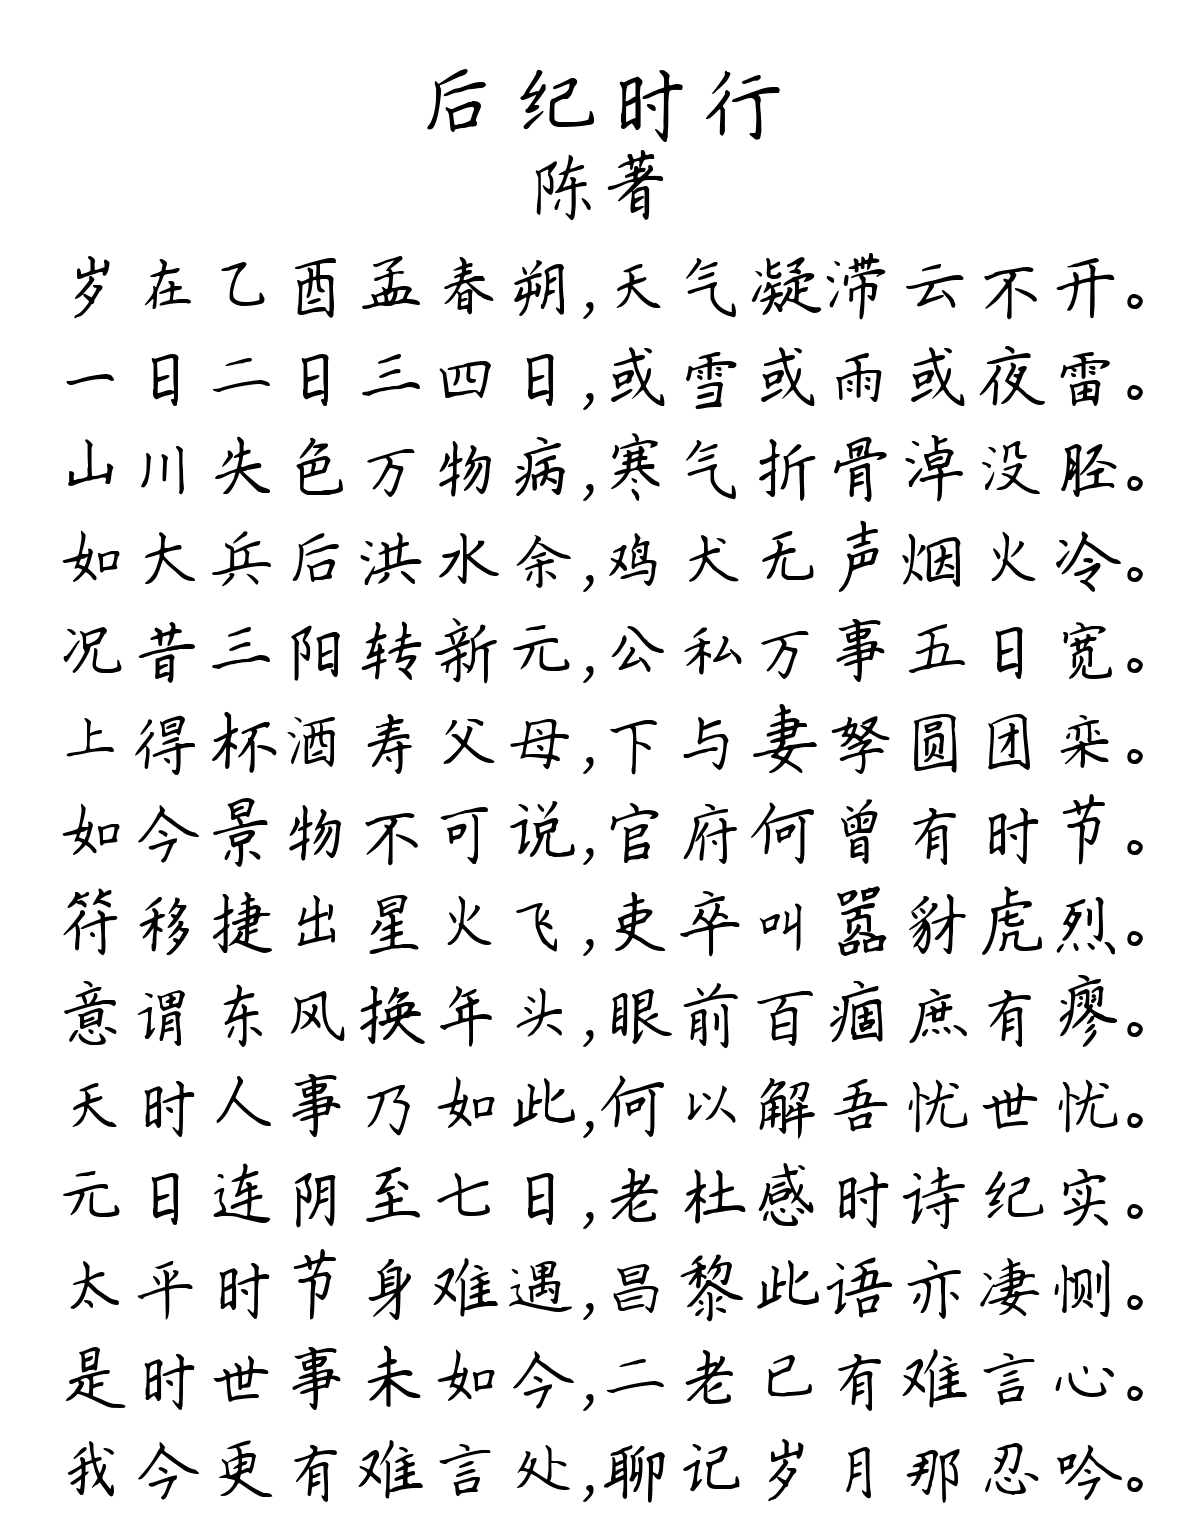 后纪时行
陈著
岁在乙酉孟春朔,天气凝滞云不开。
一日二日三四日,或雪或雨或夜雷。
山川失色万物病,寒气折骨淖没胫。
如大兵后洪水余,鸡犬无声烟火冷。
况昔三阳转新元,公私万事五日宽。
上得杯酒寿父母,下与妻孥圆团栾。
如今景物不可说,官府何曾有时节。
符移捷出星火飞,吏卒叫嚣豺虎烈。
意谓东风换年头,眼前百痼庶有瘳。
天时人事乃如此,何以解吾忧世忧。
元日连阴至七日,老杜感时诗纪实。
太平时节身难遇,昌黎此语亦凄恻。
是时世事未如今,二老已有难言心。
我今更有难言处,聊记岁月那忍吟。